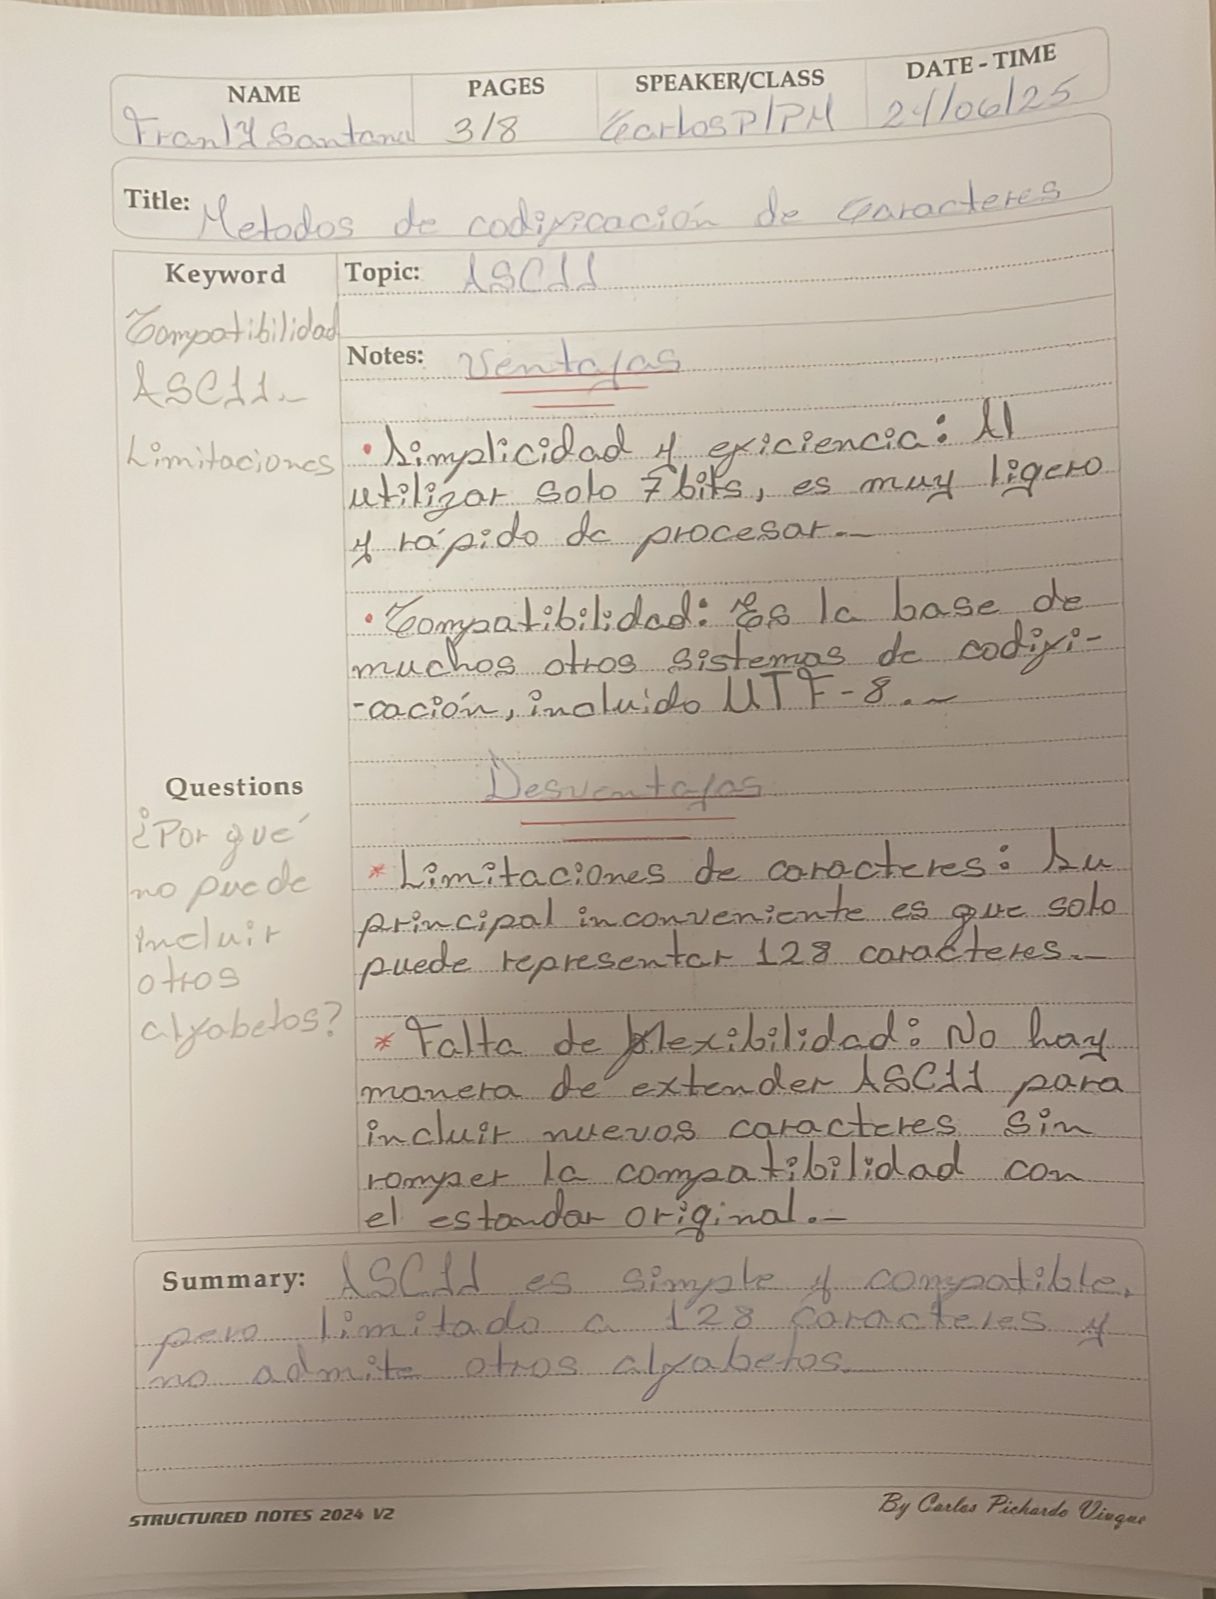 NAME PAGES SPEAKER/CLASS DATE - TIME
Franly Santana 3/8 Carlos P/PM 21/06/25
Title: Metodos de codificación de Caracteres
Keyword
Compatibilidad
ASCII.-
Limitaciones
Topic: ASCII
Notes: Ventajas
• Simplicidad y eficiencia: Al
utilizar solo 7 bits, es muy ligero
y rápido de procesar.-
• Compatibilidad: Es la base de
muchos otros sistemas de codifi-
-cación, incluido UTF-8.-
Questions
¿Por qué
no puede
incluir
otros
alfabetos?
Desventajas
* Limitaciones de caracteres: Su
principal inconveniente es que solo
puede representar 128 caracteres.-
* Falta de flexibilidad: No hay
manera de extender ASCII para
incluir nuevos caracteres sin
romper la compatibilidad con
el estandar original.-
Summary: ASCII es simple y compatible,
pero limitado a 128 caracteres y
no admite otros alfabetos.
STRUCTURED NOTES 2024 V2
By Carlos Pichardo Viuque